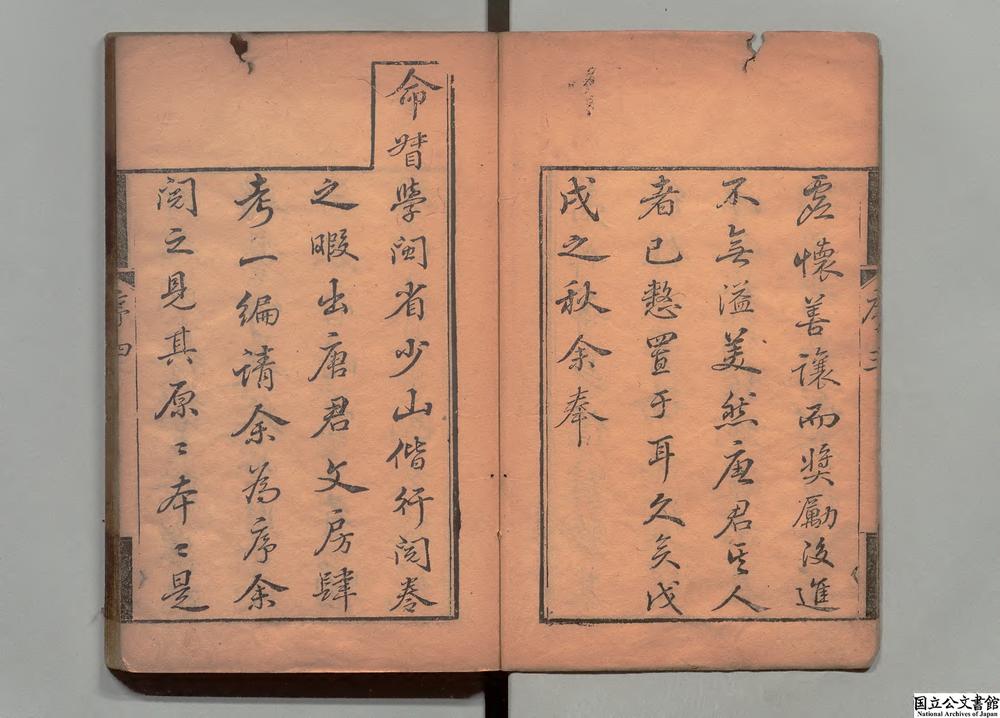 虛懷善讓而奬勵後進
不無溢美然唐君其人
者已慗置于耳久矣戊
戌之秋余奉
序三
命督學閩省少山偕行閱卷
之暇出唐君文房肆
考一編請余為序余
閱之見其原〻本〻是
序四
国立公文書館
National Archives of Japan